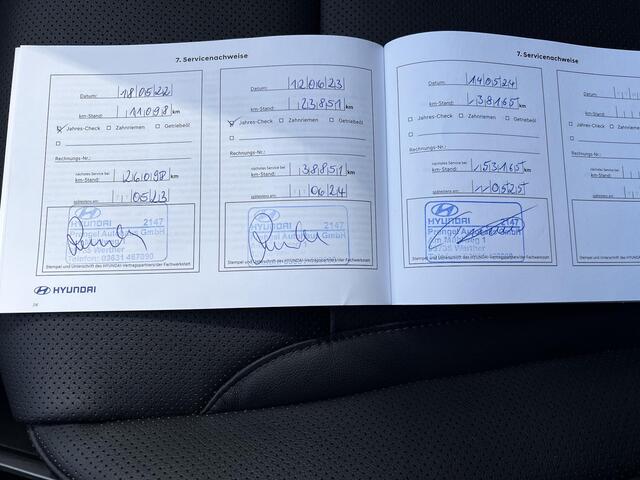 7. Servicenachweise
Datum: 18 05 22
km-Stand: 11098 km
Jahres-Check Zahnriemen Getriebeöl
Rechnungs-Nr.:
nächstes Service bei
km-Stand: 26098 km
spätestens am: 05 23
HYUNDAI 2147
Prengel Autohaus GmbH
Werther
Telefon: 03631 467090
Stempel und Unterschrift des HYUNDAI-Vertragspartners/der Fachwerkstatt.
Datum: 12 06 23
km-Stand: 23851 km
Jahres-Check Zahnriemen Getriebeöl
Rechnungs-Nr.:
nächstes Service bei
km-Stand: 38851 km
spätestens am: 06 24
HYUNDAI 2147
GmbH
Stempel und Unterschrift des HYUNDAI-Vertragspartners/der Fachwerkstatt.
HYUNDAI
7. Servicenachweise
Datum: 14 05 24
km-Stand: 38165 km
Jahres-Check Zahnriemen Getriebeöl
Rechnungs-Nr.:
nächstes Service bei
km-Stand: 53165 km
spätestens am: 05 25
HYUNDAI 2147
Prengel Autohaus GmbH
Werther
Stempel und Unterschrift des HYUNDAI-Vertragspartners/der Fachwerkstatt.
Datum:
km-Stand:
Jahres-Check Zahnriemen
Rechnungs-Nr.:
nächstes Service bei
km-Stand:
spätestens am:
Stempel und Unterschrift des HYUNDAI-